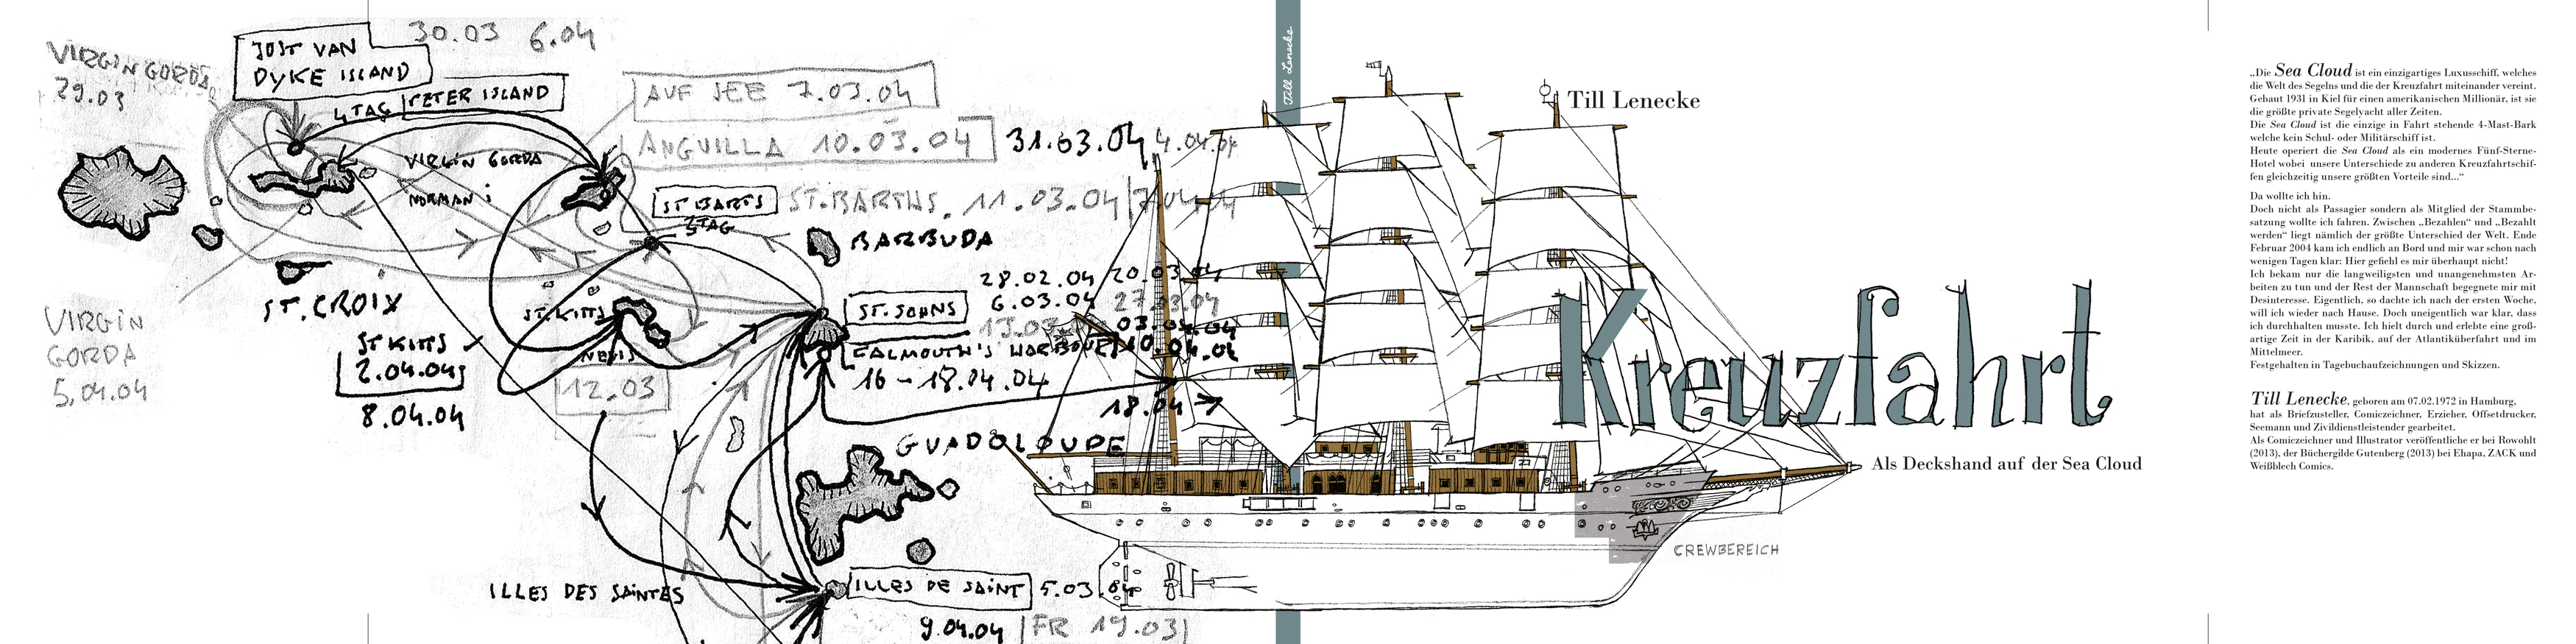 30.03 6.04
VIRGIN GORDA
29.03
JOST VAN
DYKE ISLAND
4 TAG
PETER ISLAND
AUF SEE 7.03.04
ANGUILLA 10.03.04
31.03.04
4.04.04
VIRGIN GORDA
NORMAN i
ST BARTS
3 TAG
ST. BARTHS. 11.03.04
BARBUDA
ST. CROIX
28.02.04 20.03.04
6.03.04 27.03.04
ST. JOHNS
03.04.04
FALMOUTH'S HARBOUR
10.04.04
16 - 18.04.04
VIRGIN
GORDA
5.04.04
ST. KITTS
NEVIS
12.03
ST KITTS
2.04.04
8.04.04
18.04
GUADOLOUPE
ILLES DES SAINTES
ILLES DE SAINT
5.03.04
9.04.04
FR 19.03
Till Lenecke
Till Lenecke
Kreuzfahrt
Als Deckshand auf der Sea Cloud
CREWBEREICH
„Die Sea Cloud ist ein einzigartiges Luxusschiff, welches
die Welt des Segelns und die der Kreuzfahrt miteinander vereint.
Gebaut 1931 in Kiel für einen amerikanischen Millionär, ist sie
die größte private Segelyacht aller Zeiten.
Die Sea Cloud ist die einzige in Fahrt stehende 4-Mast-Bark
welche kein Schul- oder Militärschiff ist.
Heute operiert die Sea Cloud als ein modernes Fünf-Sterne-
Hotel wobei unsere Unterschiede zu anderen Kreuzfahrtschif-
fen gleichzeitig unsere größten Vorteile sind...“
Da wollte ich hin.
Doch nicht als Passagier sondern als Mitglied der Stammbe-
satzung wollte ich fahren. Zwischen „Bezahlen“ und „Bezahlt
werden“ liegt nämlich der größte Unterschied der Welt. Ende
Februar 2004 kam ich endlich an Bord und mir war schon nach
wenigen Tagen klar: Hier gefiehl es mir überhaupt nicht!
Ich bekam nur die langweiligsten und unangenehmsten Ar-
beiten zu tun und der Rest der Mannschaft begegnete mir mit
Desinteresse. Eigentlich, so dachte ich nach der ersten Woche,
will ich wieder nach Hause. Doch uneigentlich war klar, dass
ich durchhalten musste. Ich hielt durch und erlebte eine groß-
artige Zeit in der Karibik, auf der Atlantiküberfahrt und im
Mittelmeer.
Festgehalten in Tagebuchaufzeichnungen und Skizzen.
Till Lenecke, geboren am 07.02.1972 in Hamburg,
hat als Briefzusteller, Comiczeichner, Erzieher, Offsetdrucker,
Seemann und Zivildienstleistender gearbeitet.
Als Comiczeichner und Illustrator veröffentliche er bei Rowohlt
(2013), der Büchergilde Gutenberg (2013) bei Ehapa, ZACK und
Weißblech Comics.